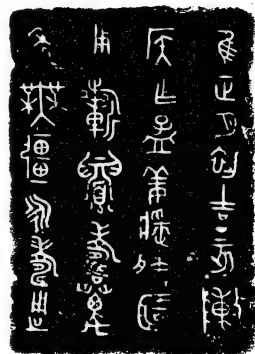 隹正月初吉丁亥陳
侯乍孟姜媵
用祈眉壽萬
年無疆永壽用之